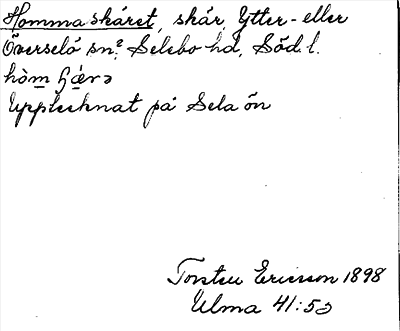 Hommaskäret, skär, Ytter- eller
Överselö sn? Selebo hd, Söd. l.
Upptecknat på Selaön
Torsten Ericsson 1898
Ulma 41:53